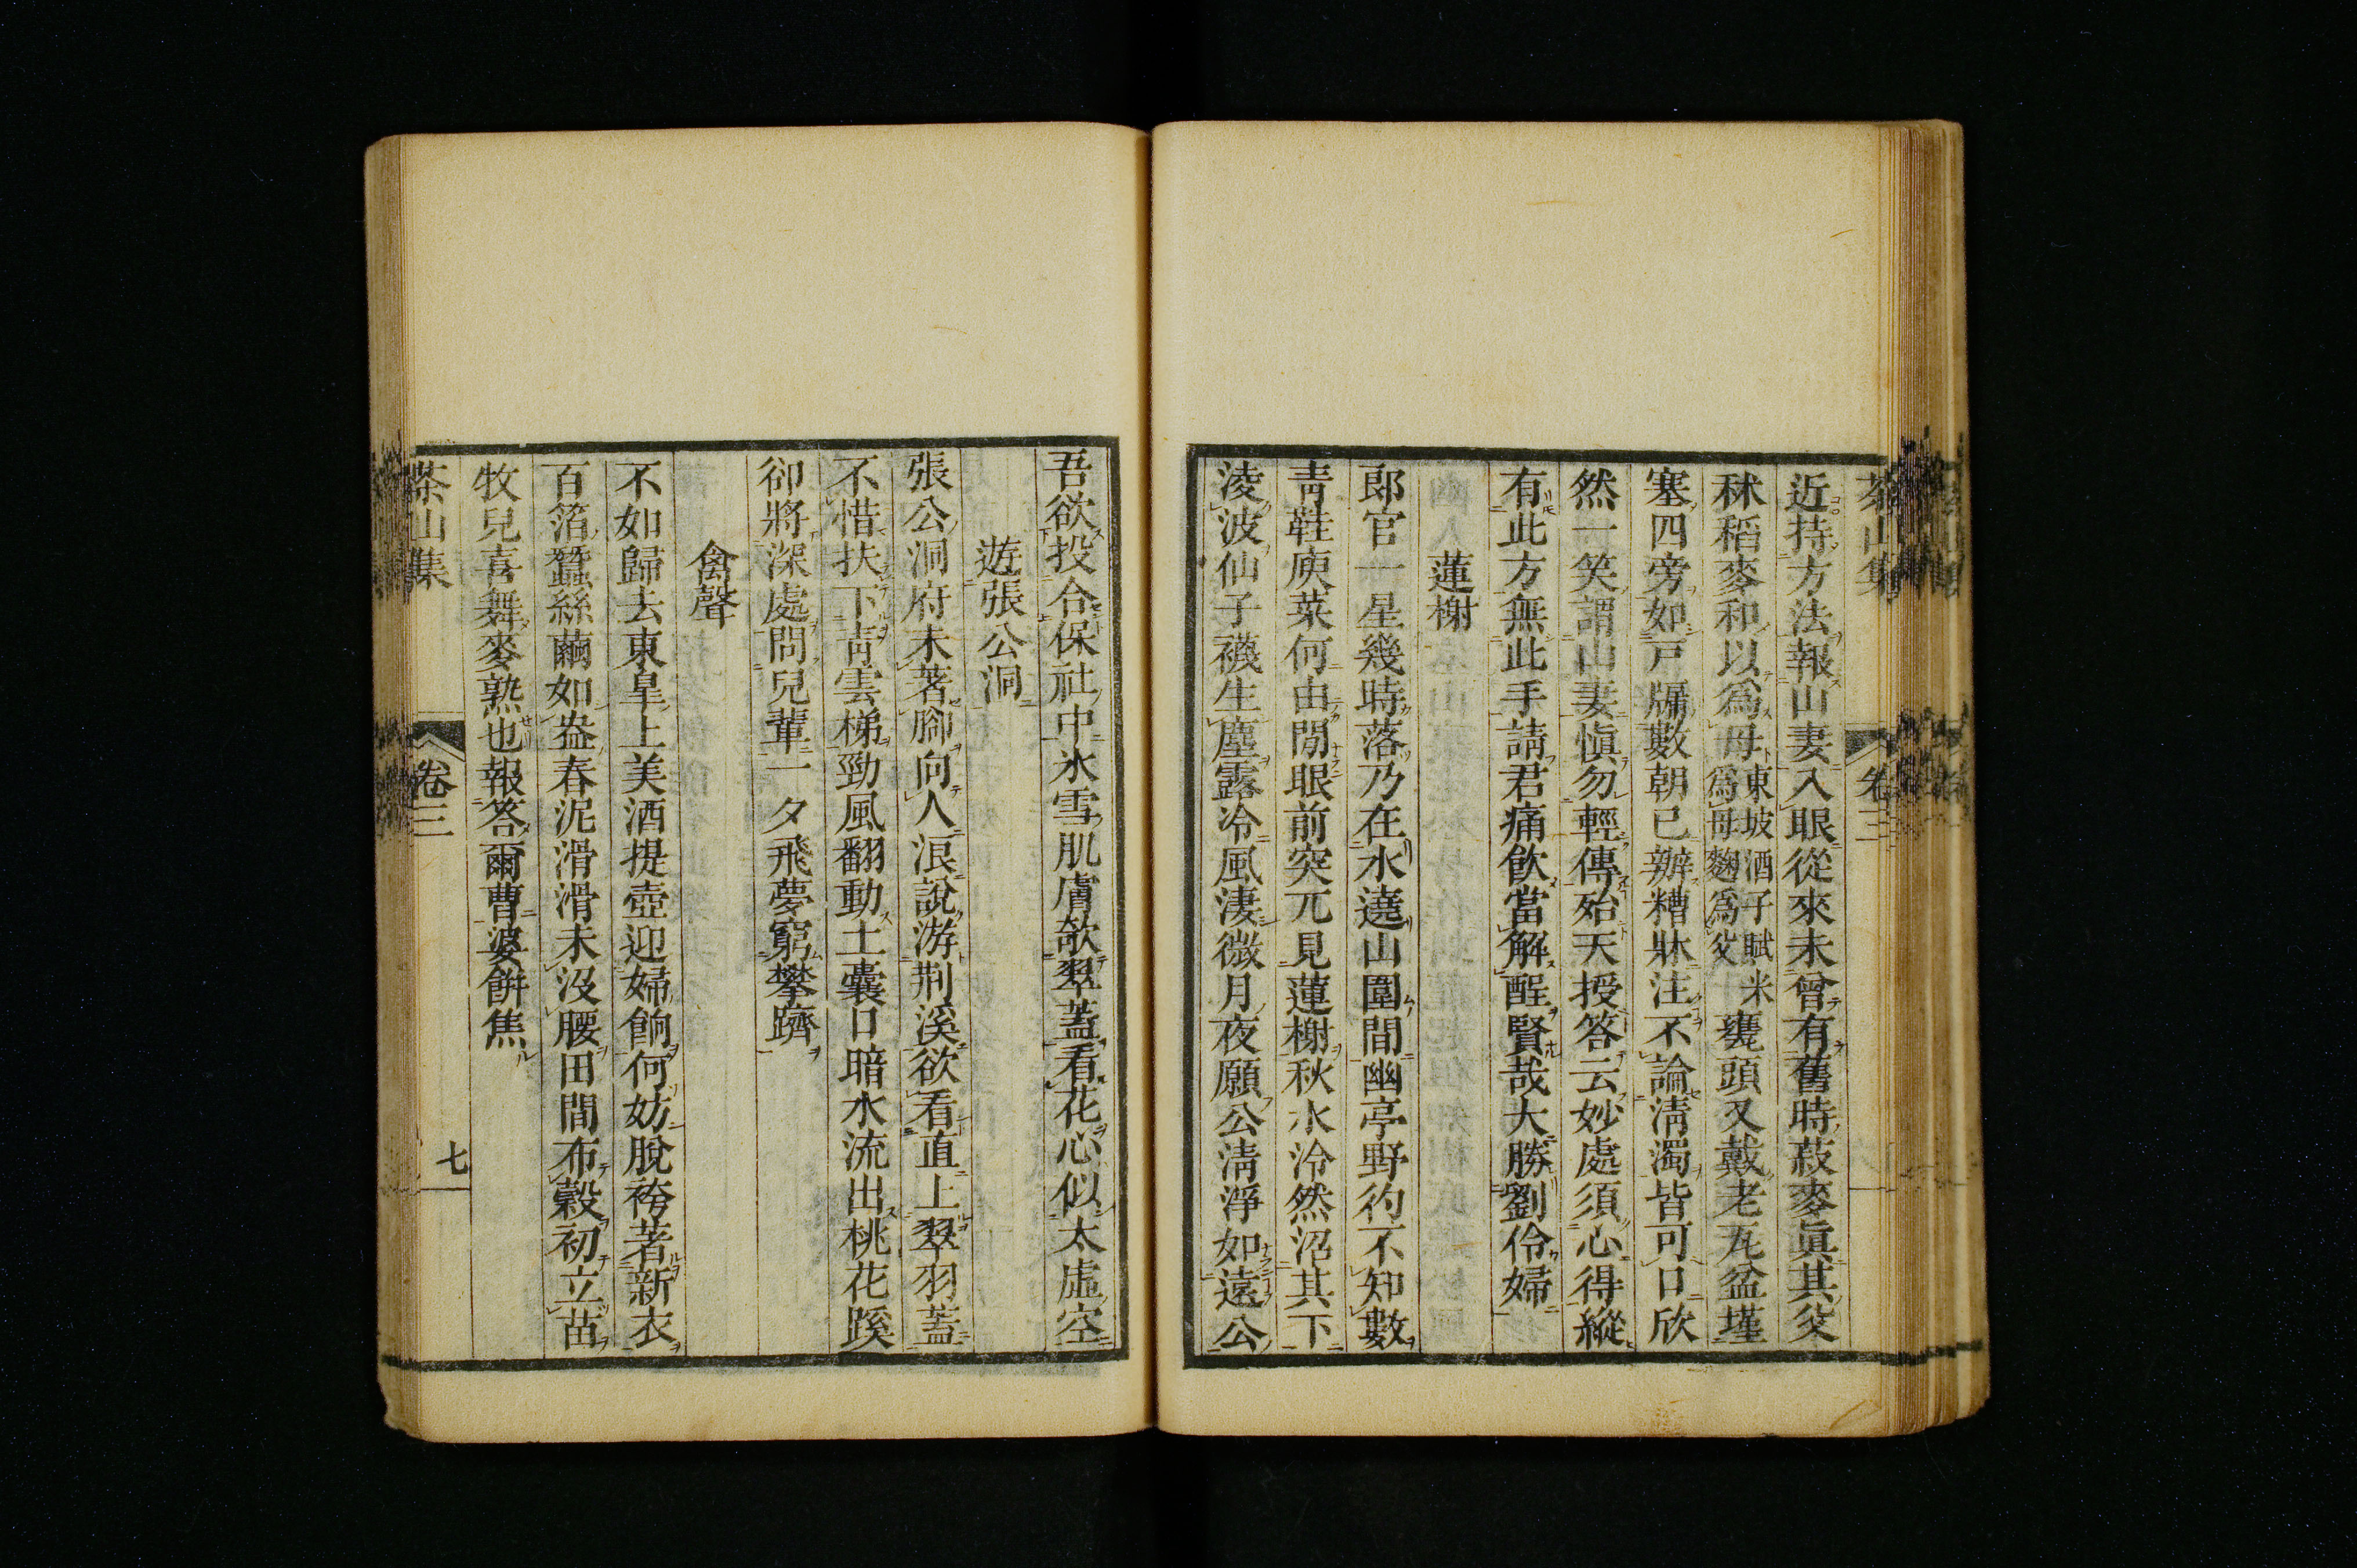 茶山集 卷三
近持方法報山妻入眼從來未曾有舊時菽麥眞其父
秫稻麥和以爲母東坡酒子賦米爲母麴爲父甕頭又戴老瓦盆墐
塞四旁如戸牖數朝已辦糟牀注不論淸濁皆可口欣
然一笑謂山妻愼勿輕傳殆天授答云妙處須心得縱
有此方無此手請君痛飮當解酲賢哉大勝劉伶婦
蓮榭
郞官一星幾時落乃在水遶山圍間幽亭野彴不知數
靑鞋庾菜何由閒眼前突兀見蓮榭秋水泠然沼其下
淩波仙子襪生塵露冷風淒微月夜願公淸淨如遠公
吾欲投合保社中氷雪肌膚欹翠蓋看花心似太虛空
遊張公洞
張公洞府未著腳向人浪說游荆溪欲看直上翠羽蓋
不惜扶下靑雲梯勁風翻動土囊口暗水流出桃花蹊
卻將深處問兒輩一夕飛夢窮攀躋
禽聲
不如歸去東皐上美酒提壺迎婦餉何妨脫袴著新衣
百箔蠶絲繭如盎春泥滑滑未沒腰田間布穀初立苗
牧兒喜舞麥熟也報答爾曹婆餠焦
茶山集 卷三 七